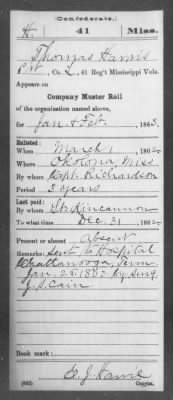 (Confederate.)
H. 41 Miss.
Thomas Harris
Pvt, Co. L, 41 Reg't Mississippi Vols.
Appears on
Company Muster Roll
of the organization named above,
for Jan & Feb, 1863.
Enlisted:
When March 1, 1862
Where Okolona Miss
By whom Capt. Richardson
Period 3 years
Last paid:
By whom G. W. Kincannon
To what time Dec. 31, 1862
Present or absent Absent
Remarks: Sent to Hospital
Chattanooga, Tenn
Jan. 28 1863 by Surg.
J. S. Cain
Book mark:
(642) Copyist.